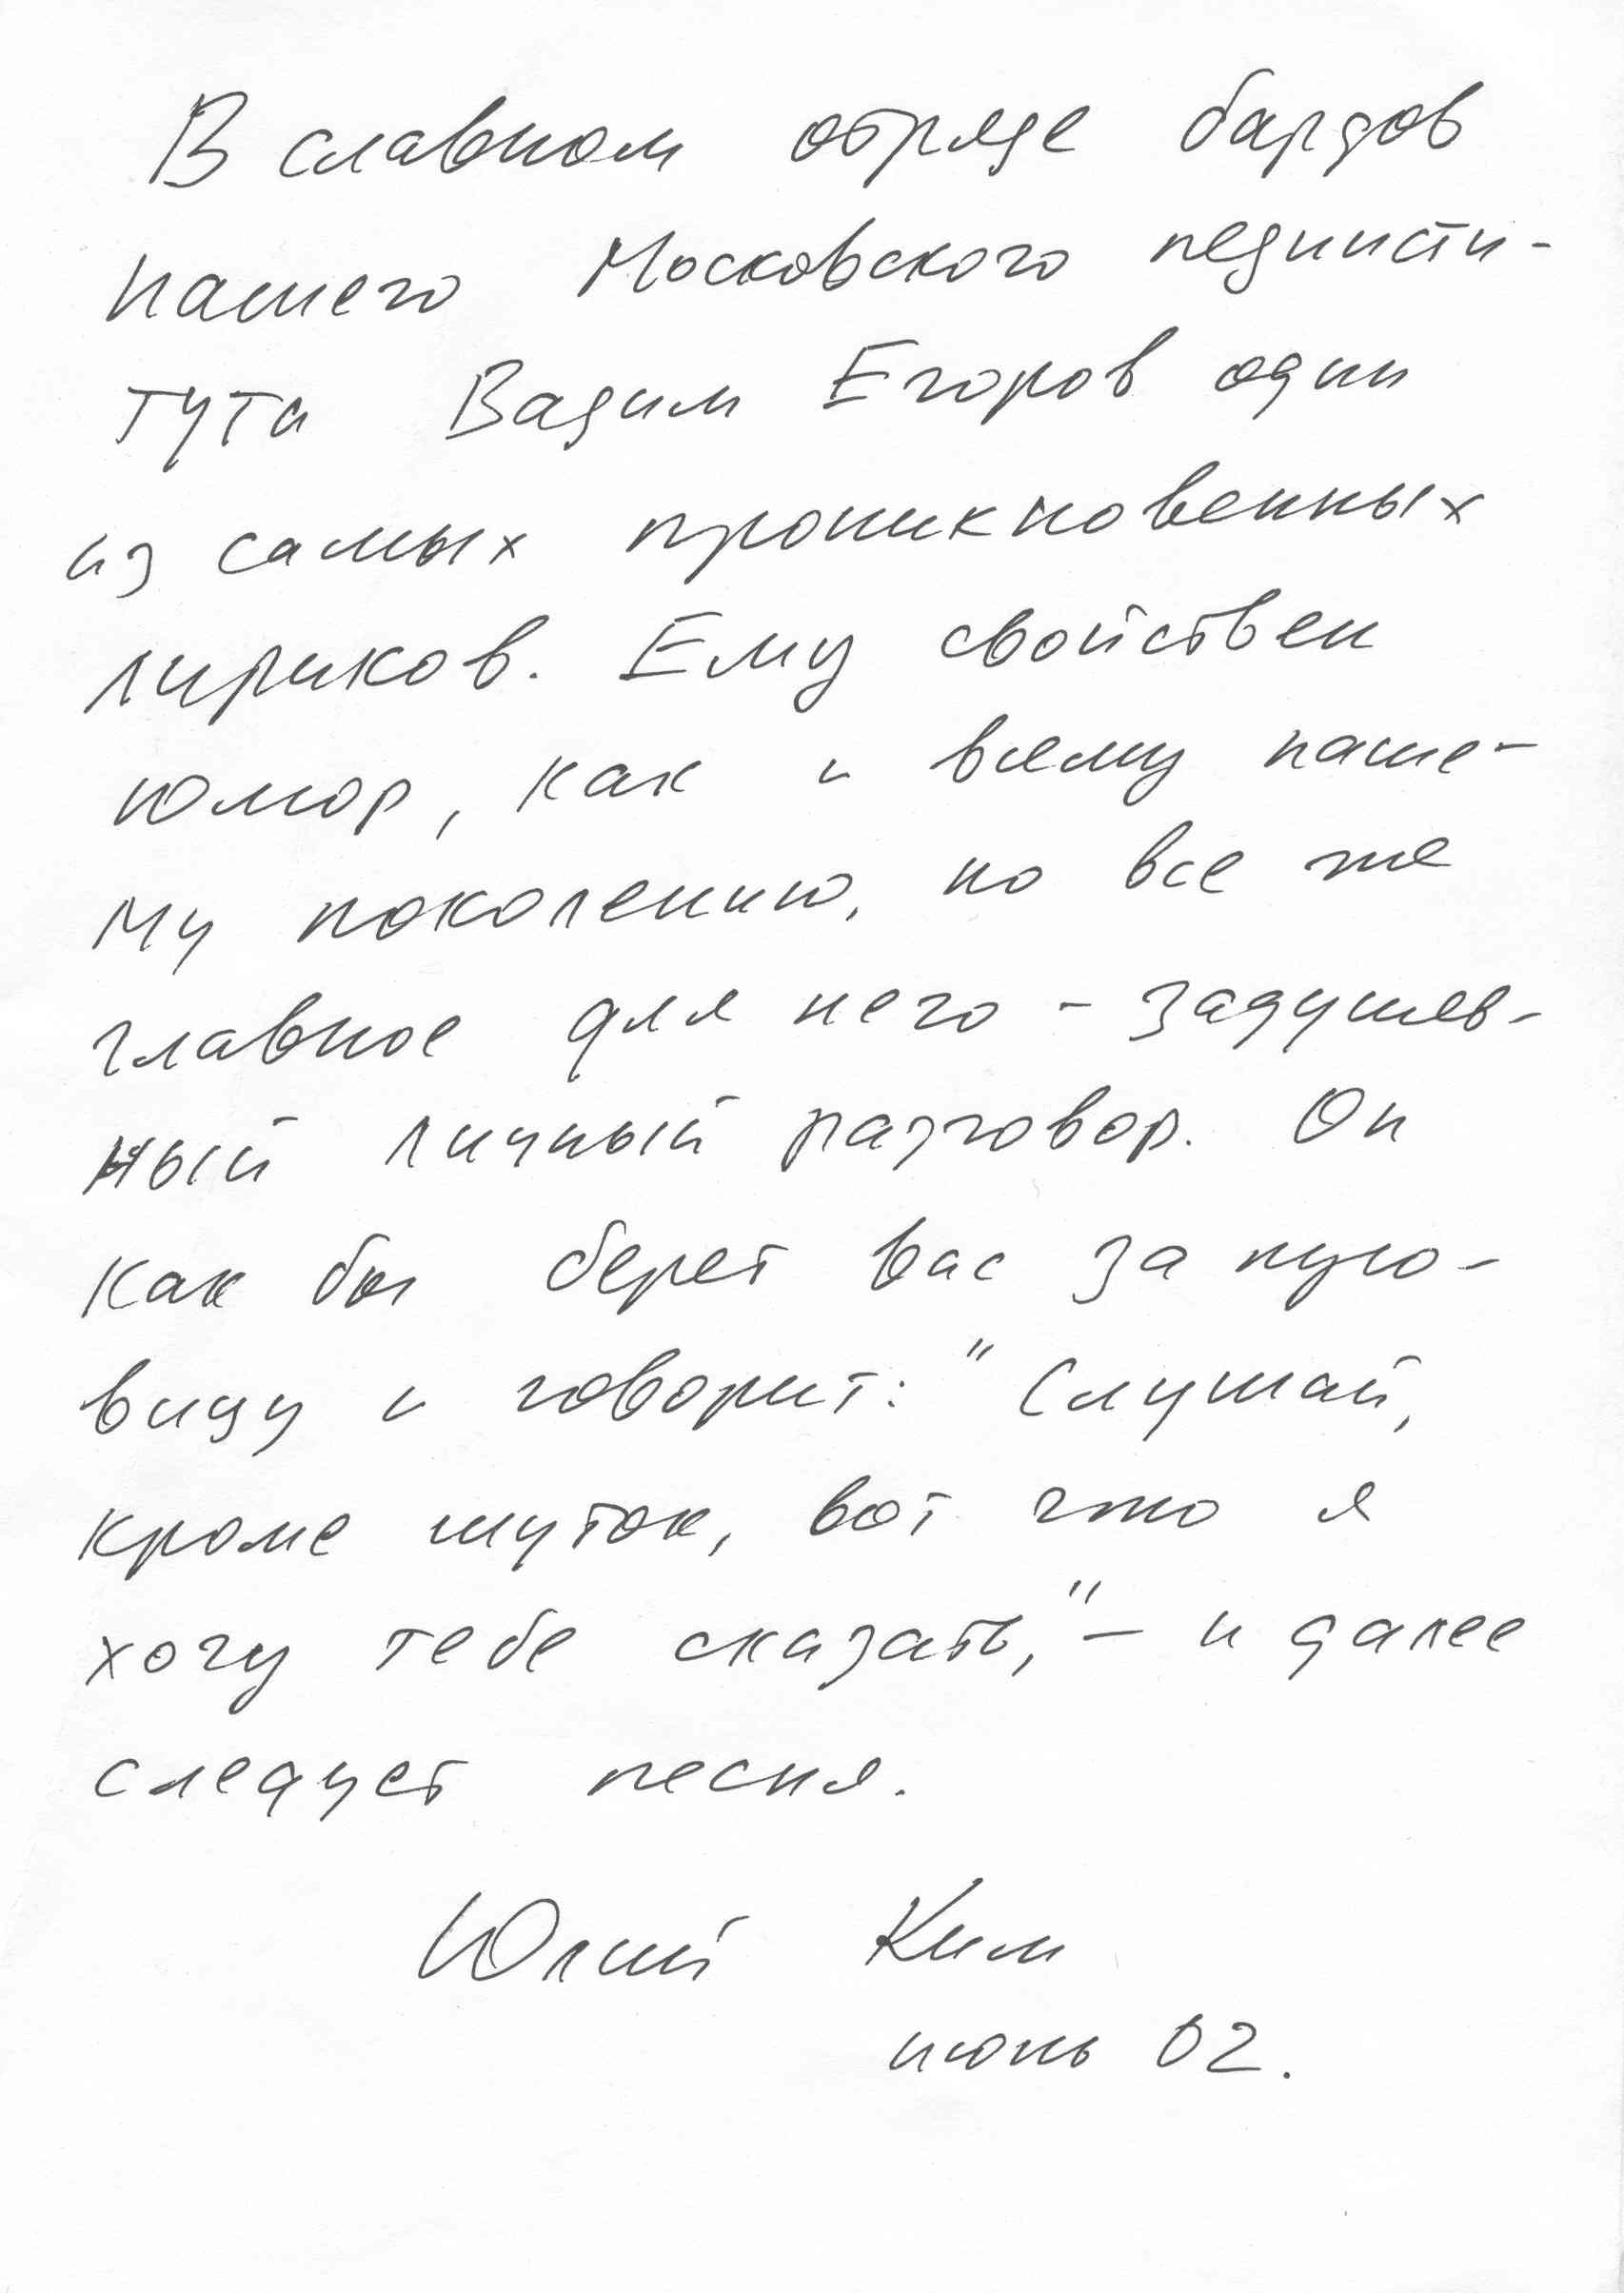 В славном отряде бардов
нашего Московского пединсти-
тута Вадим Егоров один
из самых проникновенных
лириков. Ему свойствен
юмор, как и всему наше-
му поколению, но все же
главное для него – задушев-
ный личный разговор. Он
как бы берет вас за пуго-
вицу и говорит: "Слушай,
кроме шуток, вот что я
хочу тебе сказать," – и далее
следует песня.
Юлий Ким
июнь 02.